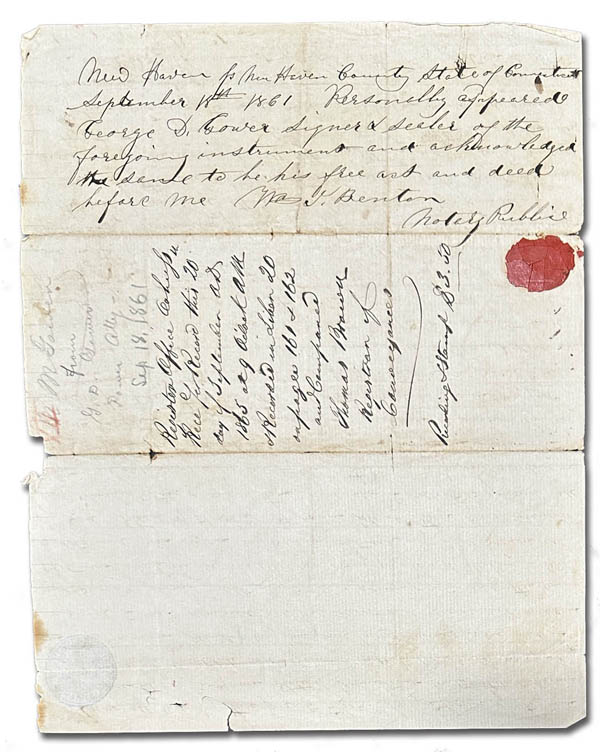 New Haven ss New Haven County State of Connecticut
September 18th 1861 Personally appeared
George D. Gower signer & sealer of the
foregoing instrument and acknowledged
the same to be his free act and deed
before me Wm T. Denton
Notary Public
from
G. D. Gower
Power Atty
Sep 18, 1861
Registrar Office
Recd for Record this 20
day of September AD
1865 at 9 Oclock AM
& Recorded in Liber 20
on pages 161 & 162
and Compared
Thomas Brown
Registrar of
Conveyances
Stamp $3.50